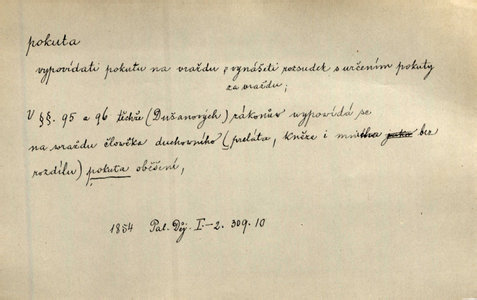 pokuta
vypovídati pokutu na vraždu, vynášeti rozsudek s určením pokuty
za vraždu;
V §§. 95 a 96 těchže (Dušanových) zákonův vypovídá se
na vraždu člověka duchovního (preláta, kněze i mnicha bez
rozdílu) pokuta oběšení,
1854 Pal. Děj. I.-2. 309. 10